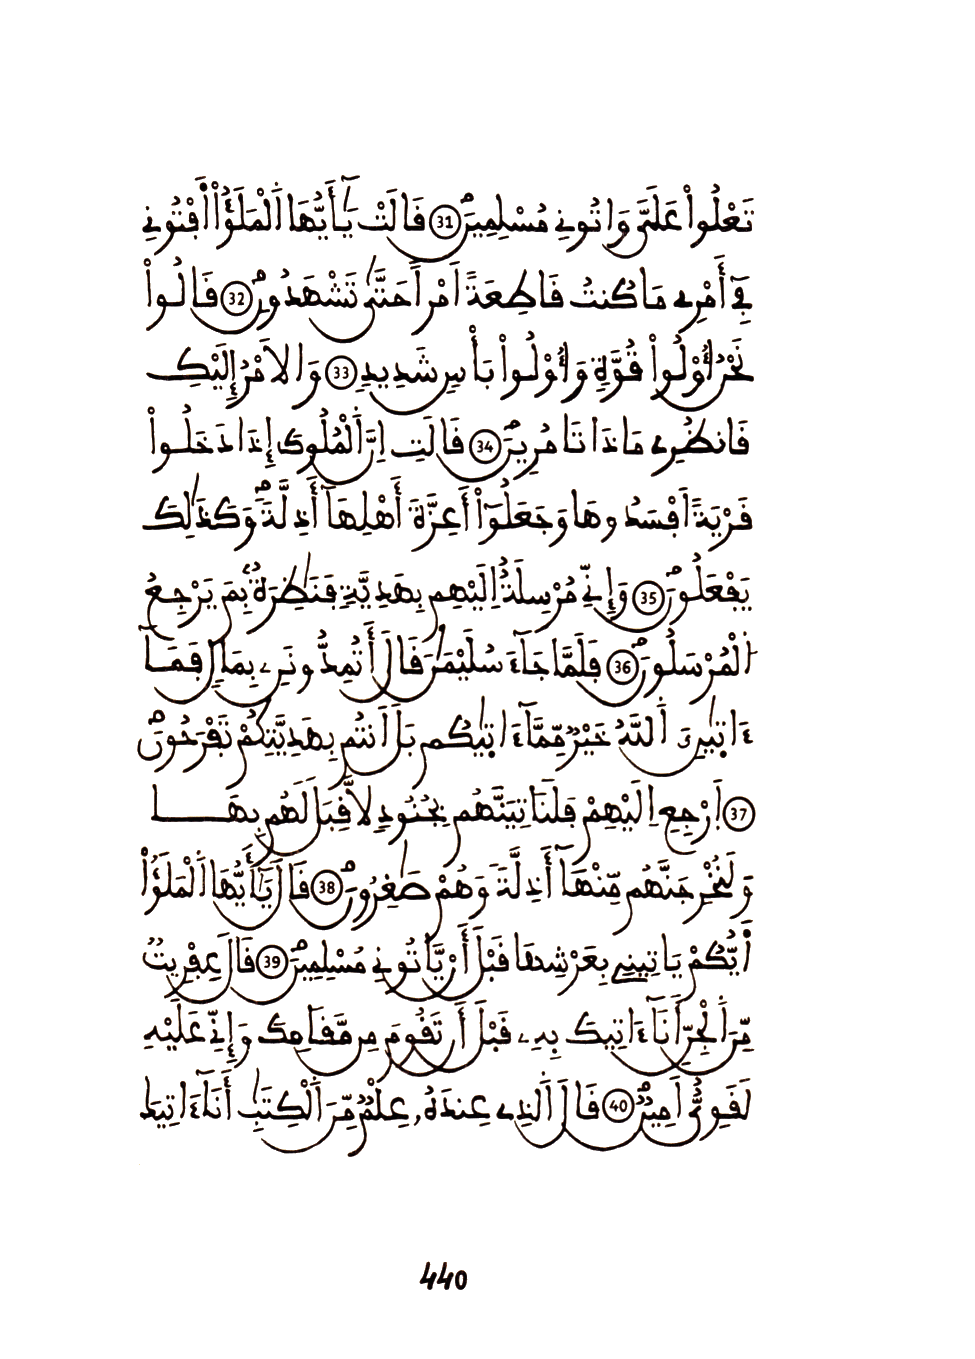 تَعْلُواْ عَلَىَّ وَاتُونِي مُسْلِمِينَ 31 قَالَتْ يَٰٓأَيُّهَا اَ۬لْمَلَؤُاْ اَفْتُونِي
فِےٓ أَمْرِے مَا كُنتُ قَاطِعَةً اَمْراً حَتَّىٰ تَشْهَدُونِ 32 قَالُواْ
نَحْنُ أُوْلُواْ قُوَّةٖ وَأُوْلُواْ بَأْسٖ شَدِيدٖ 33 وَالَامْرُ إِلَيْكِ
فَانظُرِے مَاذَا تَامُرِينَ 34 قَالَتِ اِنَّ اَ۬لْمُلُوكَ إِذَا دَخَلُواْ
قَرْيَةً اَفْسَدُوهَا وَجَعَلُوٓاْ أَعِزَّةَ أَهْلِهَآ أَذِلَّةٗ وَكَذَٰلِكَ
يَفْعَلُونَ 35 وَإِنِّي مُرْسِلَةٌ اِلَيْهِم بِهَدِيَّةٖ فَنَٰظِرَةُۢ بِمَ يَرْجِعُ
اُ۬لْمُرْسَلُونَ 36 فَلَمَّا جَآءَ سُلَيْمَٰنَ قَالَ أَتُمِدُّونَنِۦ بِمَالٖ فَمَآ
ءَاتَيٰنِۦَ اَ۬للَّهُ خَيْرٞ مِّمَّآ ءَاتَيٰكُم بَلَ اَنتُم بِهَدِيَّتِكُمْ تَفْرَحُونَ
37 اَ۪رْجِعِ اِلَيْهِمْ فَلَنَاتِيَنَّهُم بِجُنُودٖ لَّا قِبَلَ لَهُم بِهَا
وَلَنُخْرِجَنَّهُم مِّنْهَآ أَذِلَّةٗ وَهُمْ صَٰغِرُونَ 38 قَالَ يَٰٓأَيُّهَا اَ۬لْمَلَؤُاْ
اَيُّكُمْ يَاتِينِي بِعَرْشِهَا قَبْلَ أَنْ يَّاتُونِي مُسْلِمِينَ 39 قَالَ عِفْرِيتٞ
مِّنَ اَ۬لْجِنِّ أَنَآ ءَاتِيكَ بِهِۦ قَبْلَ أَن تَقُومَ مِن مَّقَامِكَ وَإِنِّي عَلَيْهِ
لَقَوِيٌّ اَمِينٞ 40 قَالَ اَ۬لذِے عِندَهُۥ عِلْمٞ مِّنَ اَ۬لْكِتَٰبِ أَنَآ ءَاتِيكَ
440